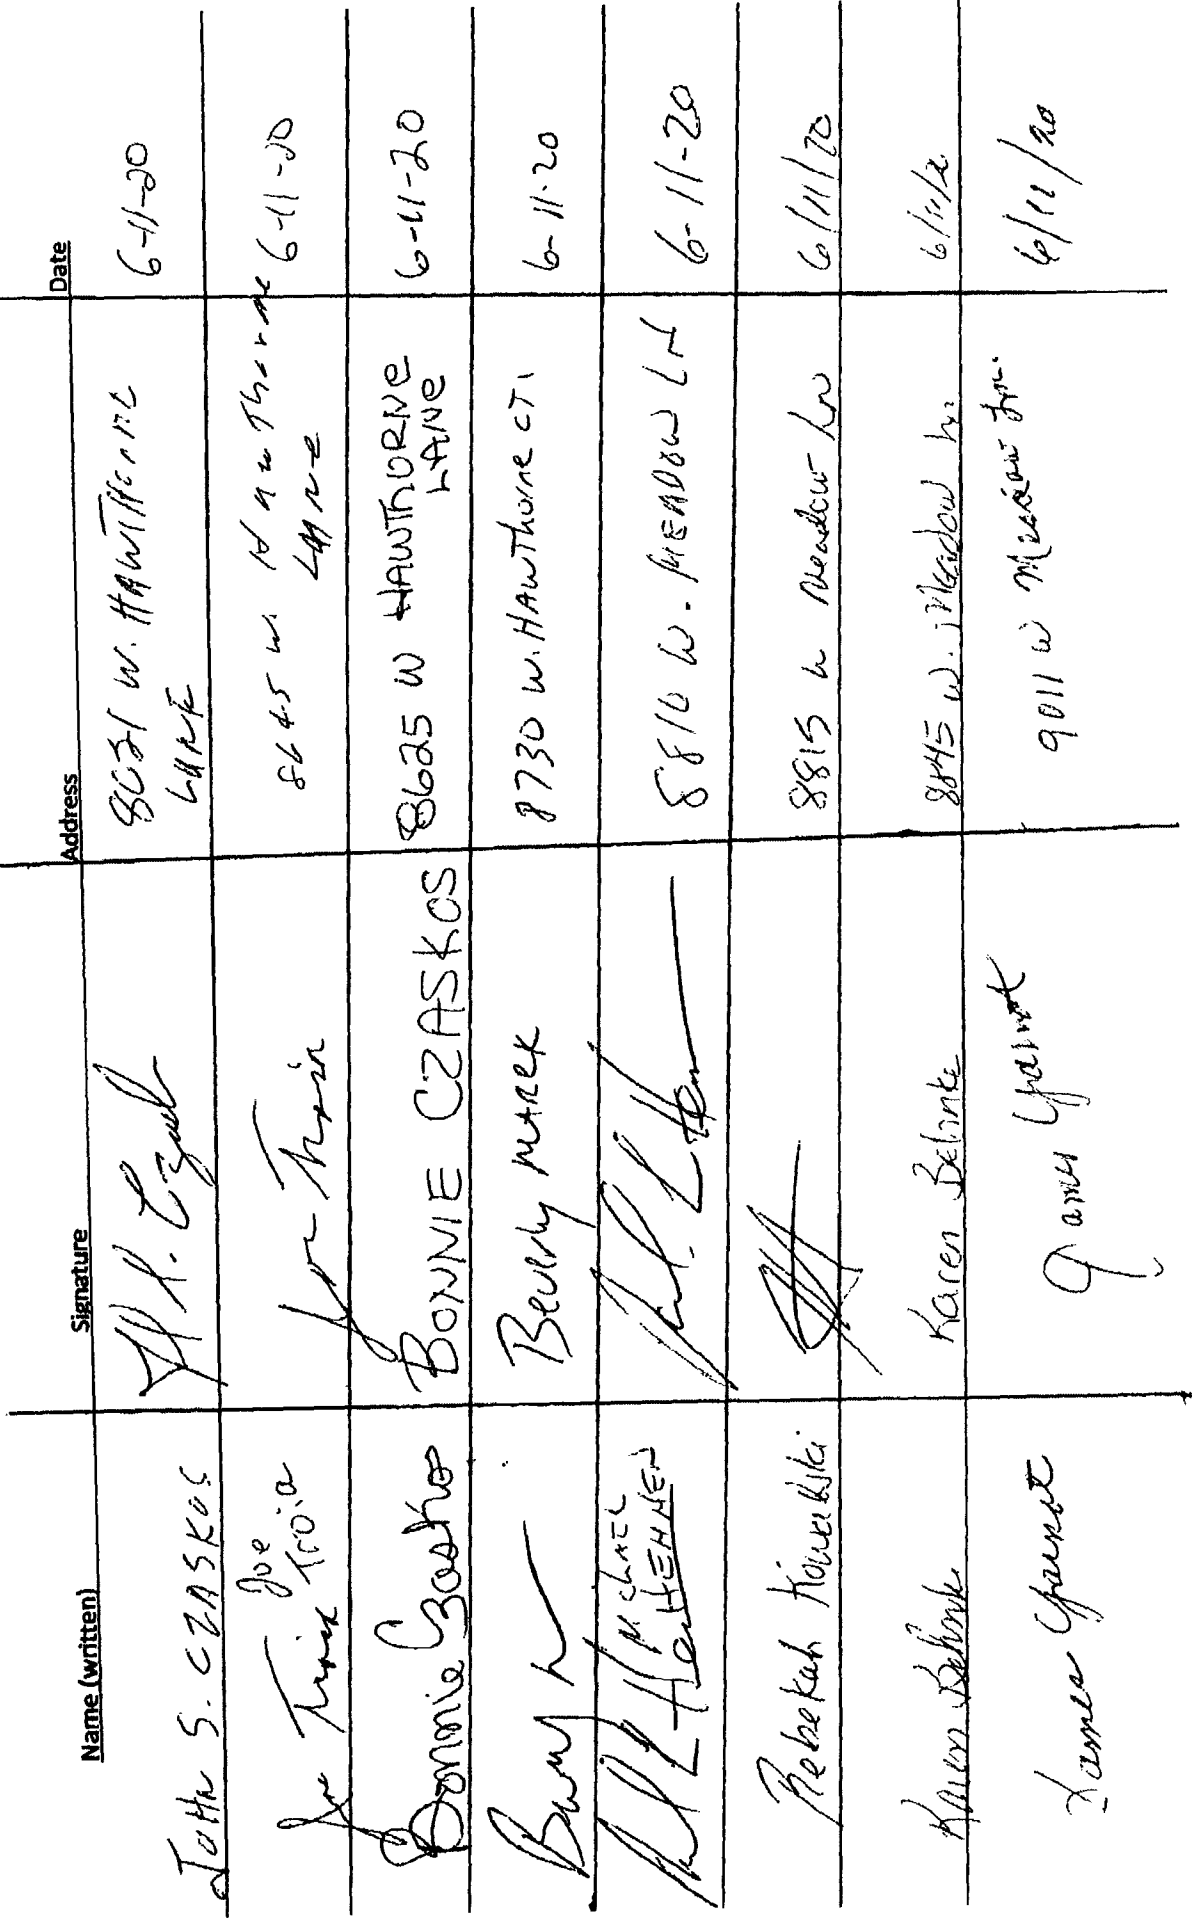 Name (written) Signature Address Date
S. CZASKOS 6-11-20
W. HAWTHORNE
LANE
Joe
Troia Joe Troia 8645 W. Hawthorne 6-11-20
Lane
Bonnie Czaskos BONNIE CZASKOS 8625 W HAWTHORNE 6-11-20
LANE
Beverly MAREK 8730 W. HAWThorne CT. 6-11-20
MichAEL
HEHNEN 8810 W. MEADOW LN 6-11-20
Rebekah Kowalski 8815 W Meadow Ln 6/11/20
Karen Behnke Karen Behnke 8845 W. Meadow Ln.
James James 9011 W Meadow Ln. 6/11/20